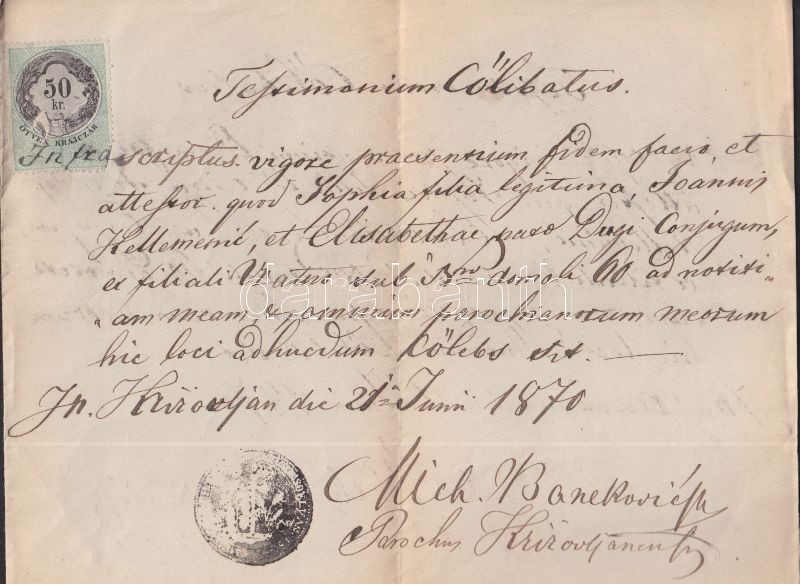 50
kr.
ÖTVEN KRAJCZÁR
Testimonium Cölibatus.
Infrascriptus vigore praesentium fidem facio, et
attestor quod Sophia filia legitima, Joannis
Kellemenić, et Elisabethae Dugi Conjugum,
ex filiali Vratno sub Nro domali 60 ad notiti
"am meam, et omnium parochianorum meorum
hic loci adhucdum Cölebs sit. —
In Križovljan die 21a Junii 1870
Mich. Banekovićh
Parochus Križovljanensis
darabanth